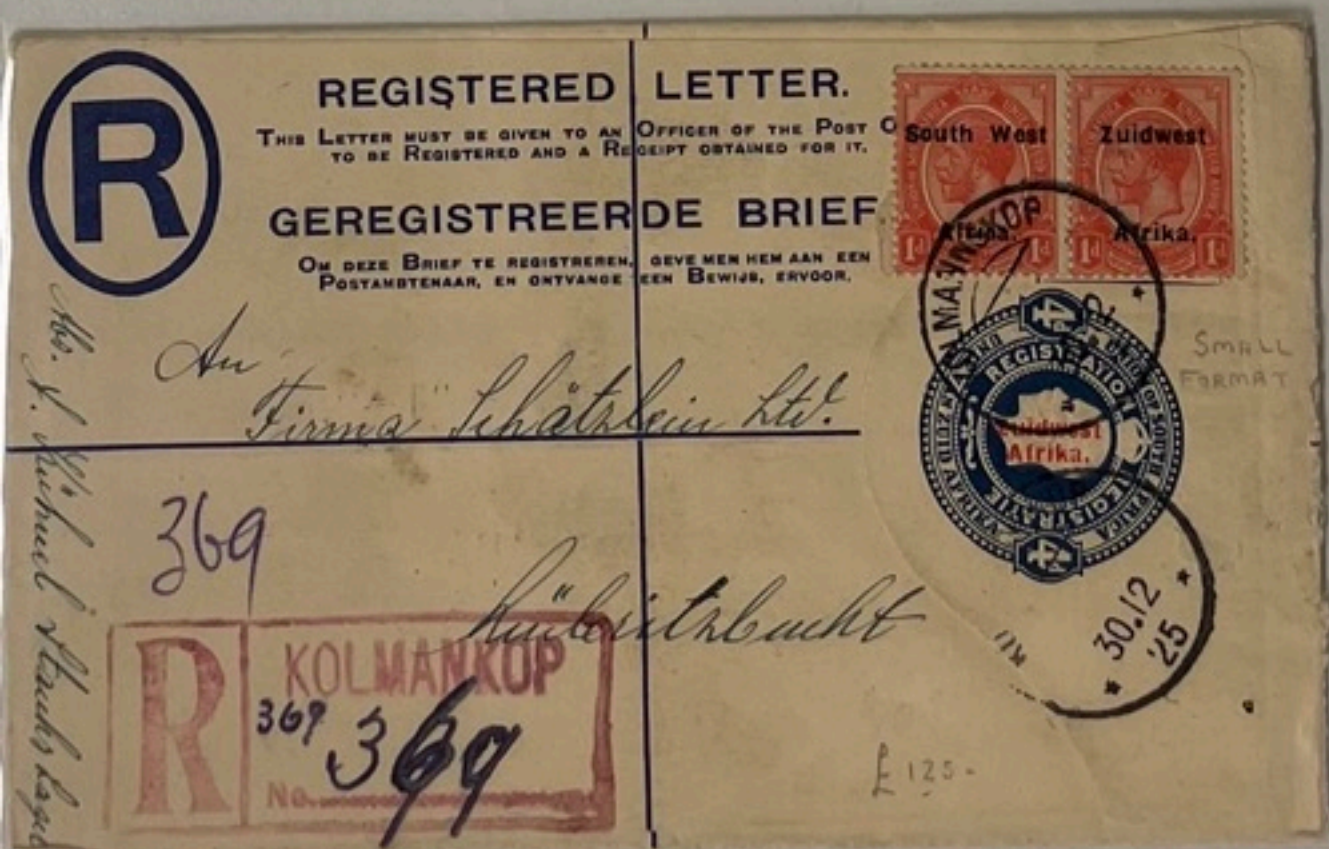 R
REGISTERED LETTER.
THIS LETTER MUST BE GIVEN TO AN OFFICER OF THE POST O
TO BE REGISTERED AND A RECEIPT OBTAINED FOR IT.
GEREGISTREERDE BRIEF
OM DEZE BRIEF TE REGISTREREN, GEVE MEN HEM AAN EEN
POSTAMBTENAAR, EN ONTVANGE EEN BEWIJS, ERVOOR.
South West
Afrika.
1d 1d
Zuidwest
Afrika.
1d 1d
KOLMANNKOP
4d
REGISTRATION
UNION OF SOUTH AFRICA
REGISTRATIE
UNIE VAN ZUID AFRIKA
4d
Zuidwest
Afrika.
SMALL
FORMAT
An
Firma Schätzlein Ltd.
Lüderitzbucht
30.12
'25
369
R
KOLMANKOP
369 369
No.
£125-
Abs.